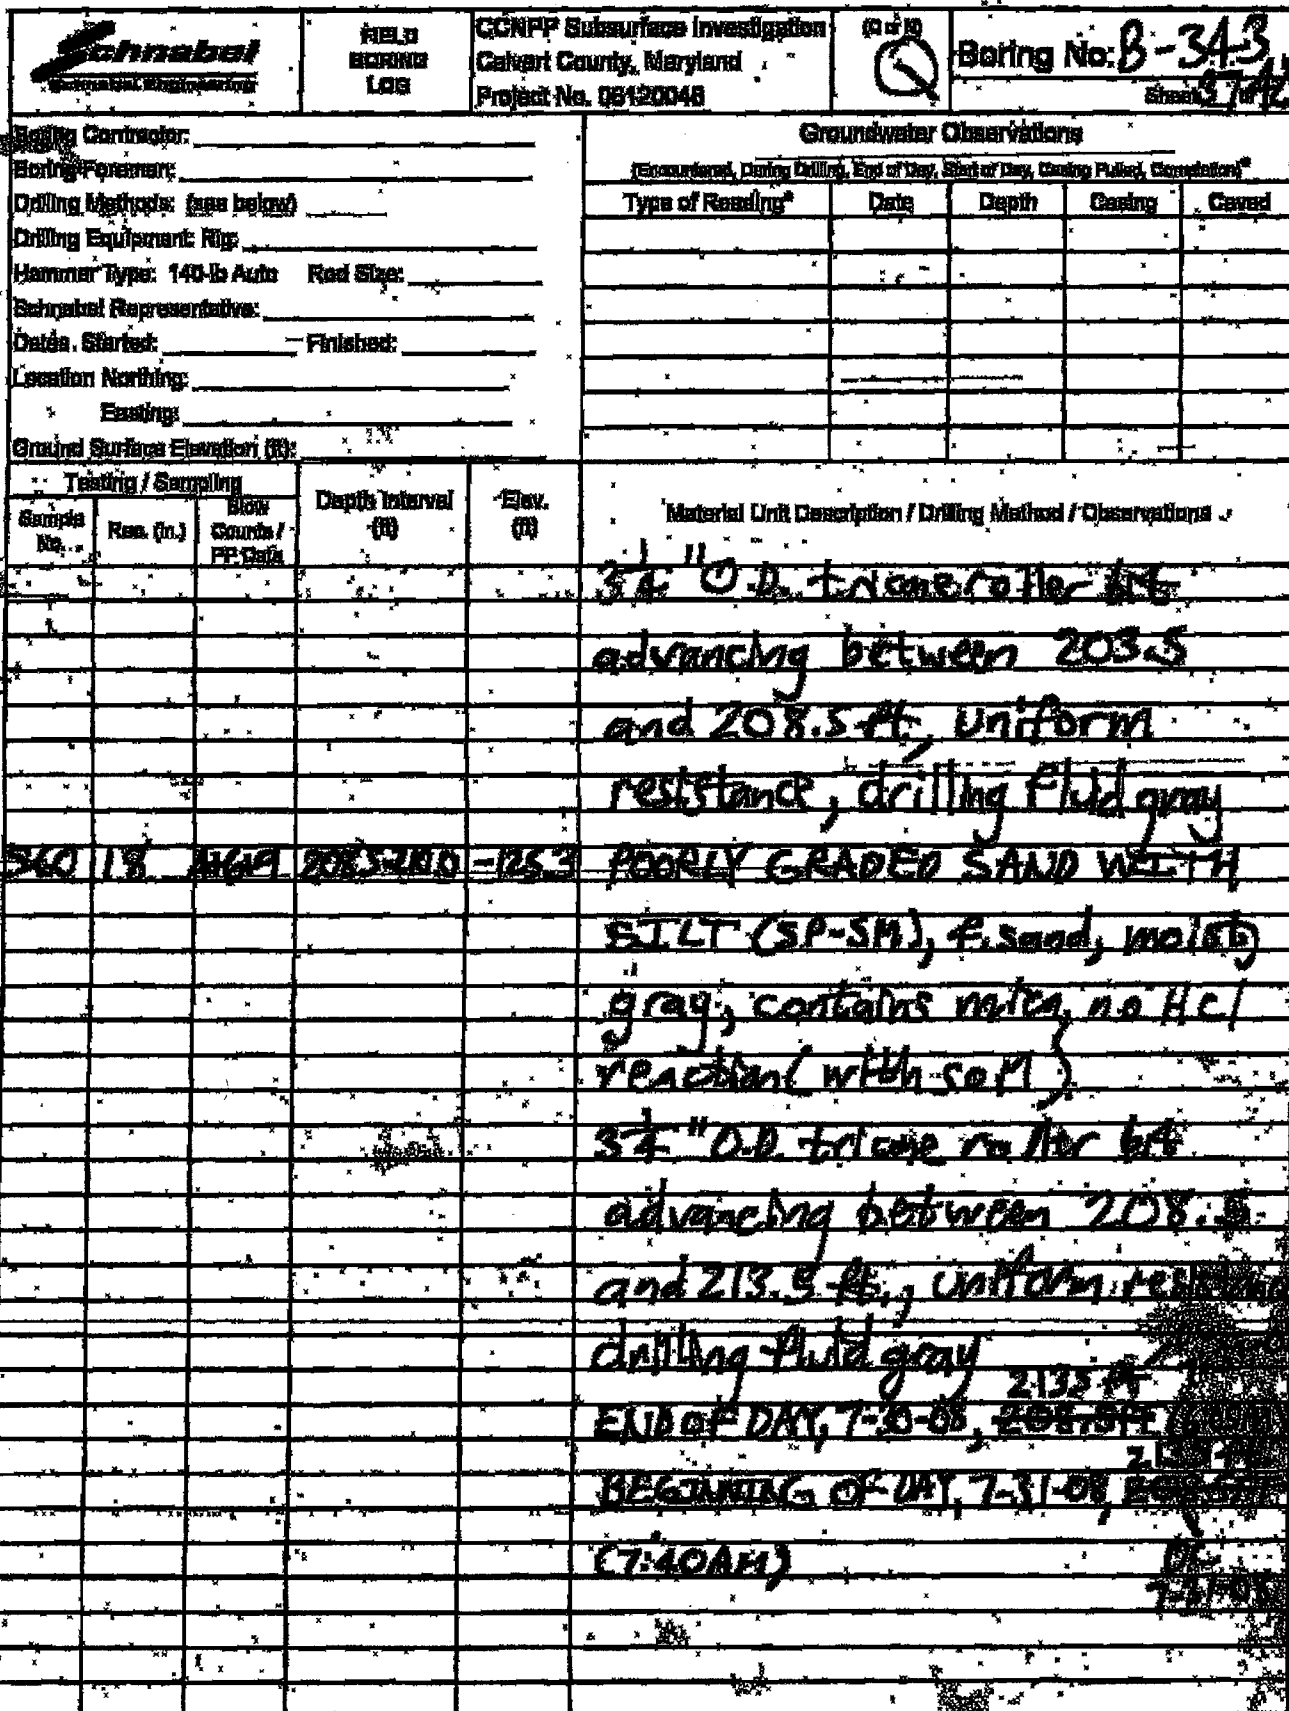 Schnabel
Schnabel Engineering
FIELD
BORING
LOG
CCNPP Subsurface Investigation
Calvert County, Maryland
Project No. 06120048
(Q or N)
Q
Boring No: B-343
Sheet 37 of
Boring Contractor:
Boring Foreman:
Drilling Methods: (see below)
Drilling Equipment: Rig:
Hammer Type: 140-lb Auto Rod Size:
Schnabel Representative:
Dates. Started: Finished:
Location Northing:
Easting:
Ground Surface Elevation (ft):
Groundwater Observations
(Encountered, During Drilling, End of Day, Start of Day, Casing Pulled, Completion)*
Type of Reading* Date Depth Casing Caved
Testing / Sampling
Sample No. Rec. (in.) Blow Counts / PP Data Depth Interval (ft) Elev. (ft) Material Unit Description / Drilling Method / Observations
3 1/4 "O.D. tricone roller bit
advancing between 203.5
and 208.5 ft, uniform
resistance, drilling fluid gray
S60 18 208.5-210.0 -125.3 POORLY GRADED SAND WITH
SILT (SP-SM), f. sand, moist,
gray, contains mica, no HCl
reaction (with SOM)
3 1/4 "O.D. tricone roller bit
advancing between 208.5
and 213.5 ft., uniform
drilling fluid gray
213.5 ft
END OF DAY, 7-30-08, 208.5ft
213.5 ft
BEGINNING OF DAY, 7-31-08,
(7:40AM)
7-31-08